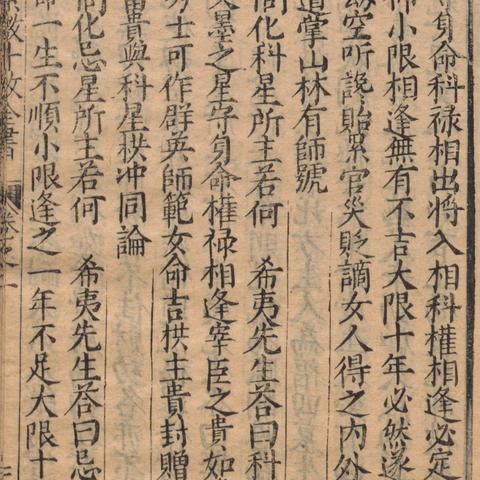 守身命科禄相出將入相科權相逢必定
作小限相逢無有不吉大限十年必然遂
劫空听謗貽累官災貶謫女人得之内外
道掌山林有師號
問化科星所主若何 希夷先生荅曰科
文墨之星守身命權禄相逢宰臣之貴如
秀士可作群英師範女命吉拱主貴封贈
富貴與科星拱冲同論
問化忌星所主若何 希夷先生荅曰忌
命一生不順小限逢之一年不足大限十
微斗數全書